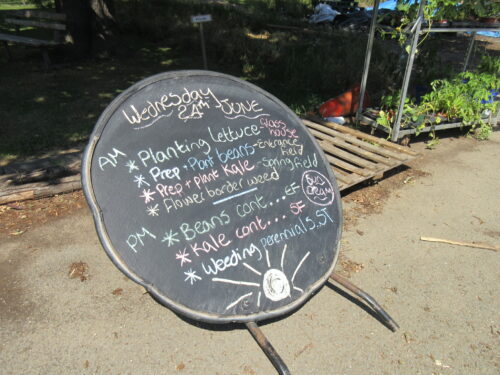 Wednesday
24TH JUNE
AM
* Planting lettuce - Glass house
* Prep + Plant beans - Entrance field
* Prep + plant Kale - Spring field
* Flower border weed
PM
* Beans cont... EF
* Kale cont... SF
* Weeding perennials.. ST